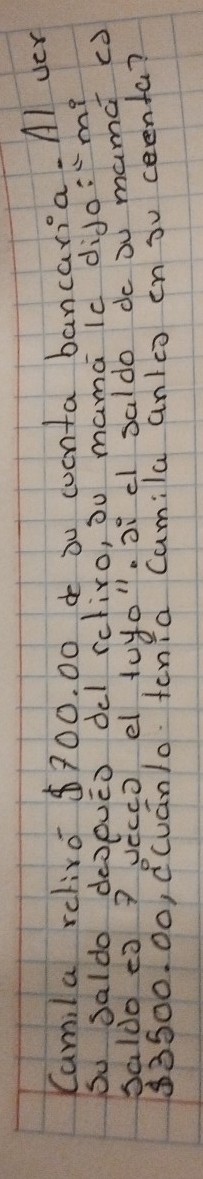 Camila retiró $700.00 de su cuenta bancaria. Al ver
su saldo después del retiro, su mamá le dijo: "mi
saldo es 7 veces el tuyo". si el saldo de su mamá es
$3500.00, ¿cuánto tenía Camila antes en su cuenta?